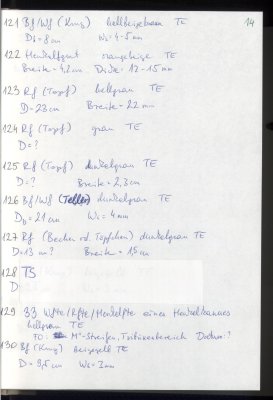 14
121 Bf/Wf (Krug) hellbeigebraun TE
Db = 8 cm Ws = 4-5 mm
122 Henkelfgmt orangebeige TE
Breite = 4,2 cm Dicke = 12-15 mm
123 Rf (Topf) hellgrau TE
D = 23 cm Breite = 22 mm
124 Rf (Topf) grau TE
D = ?
125 Rf (Topf) dunkelgrau TE
D = ? Breite = 2,3 cm
126 Bf/Wf (Teller) dunkelgrau TE
Db = 21 cm Ws = 4 mm
127 Rf (Becher od. Töpfchen) dunkelgrau TE
D = 13 cm? Breite = 1,5 cm
128 TS
D
129 33 Wfte/Rfte/Henkelfte eines Henkeltasses
hellgrau TE
FO: M"-Streifen, Dodum: ?
130 Bf (Krug) beigegelb TE
D = 8,5 cm Ws = 3 mm